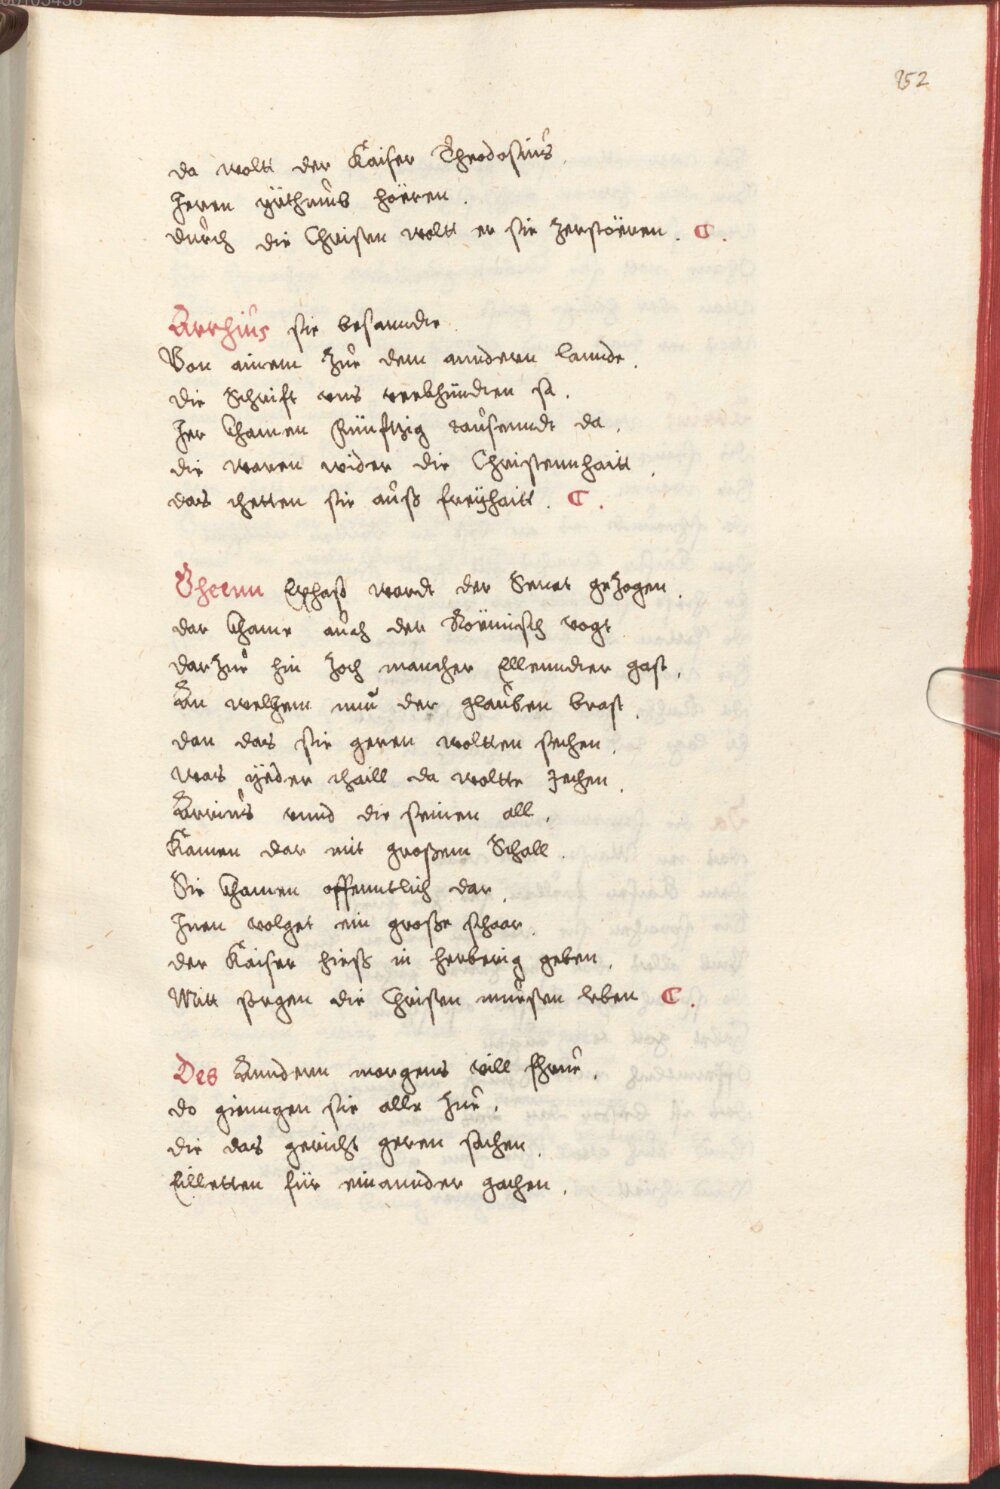 852
da wolt der Kaiser Theodosius.
Jeren yrthumb hören.
durch die Christen wolt er sie Zerstören. C.
Arrhius sie besanndte
Von ainem Zue dem anndern lannde.
die Schrift vns verkhündten sa.
Jer khamen Fünftzig tausenndt da.
die waren wider die Christennhaitt.
das thetten sie auß freÿhaitt. C.
Ephaß wardt der Senat geZogen.
dar khame auch der Römisch vogt
darZue hin Zoch mancher Ellenndter gast.
An welhem nun der glauben brast.
dan das sie geren woltten sechen.
was yeder thaill da woltte Jechen.
Arrius vnnd die seinen all.
Kamen dar mit großem Schall.
Sie khamen offenntlich dar.
Jnen volget ein große schaar.
der Kaiser hieß in herberig geben.
Mitt sorgen die Christen muesten leben C.
Des Anndern morgens vill fhrue.
do giengen sie alle Zue.
die das gericht geren sachen.
Eilletten für einannder gachen.